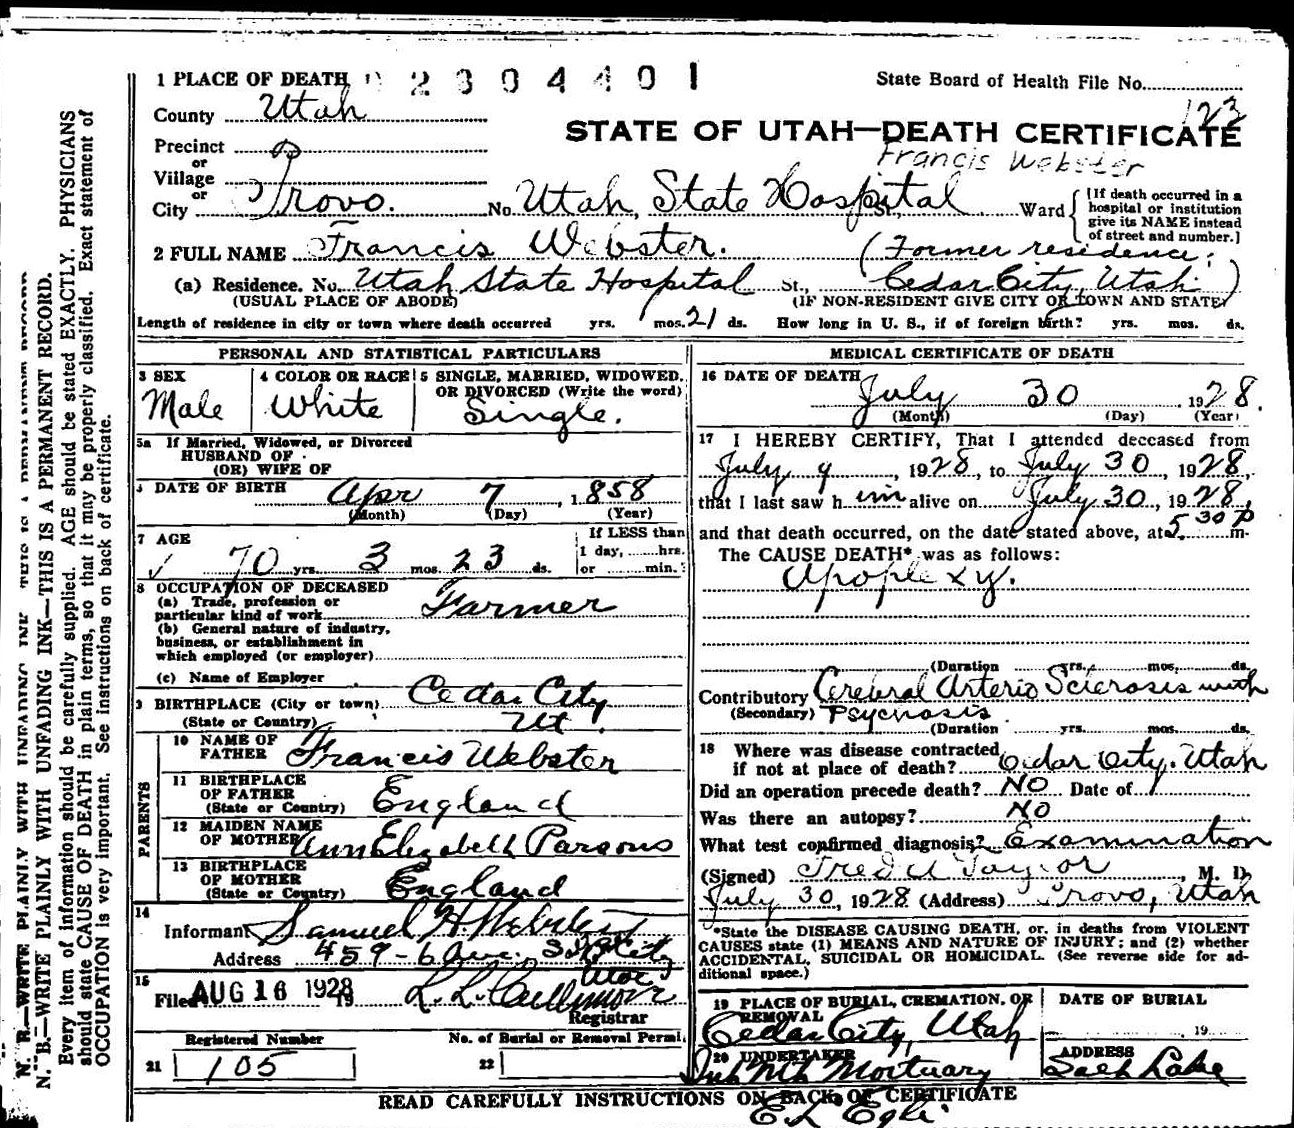 1 PLACE OF DEATH 2304401 State Board of Health File No.
123
County Utah
STATE OF UTAH—DEATH CERTIFICATE
Francis Webster
Precinct
or
Village
or
City Provo. No. Utah State Hospital St., Ward
[If death occurred in a
hospital or institution
give its NAME instead
of street and number.]
2 FULL NAME Francis Webster. (Former residence;
(a) Residence. No. Utah State Hospital St., Cedar City, Utah)
(USUAL PLACE OF ABODE) (IF NON-RESIDENT GIVE CITY OR TOWN AND STATE)
Length of residence in city or town where death occurred yrs. mos. 21 ds. How long in U. S., if of foreign birth? yrs. mos. ds.
PERSONAL AND STATISTICAL PARTICULARS
3 SEX 4 COLOR OR RACE 5 SINGLE, MARRIED, WIDOWED, OR DIVORCED (Write the word)
Male White Single.
5a If Married, Widowed, or Divorced
HUSBAND OF
(OR) WIFE OF
DATE OF BIRTH Apr 7, 1858
(Month) (Day) (Year)
7 AGE
70 yrs. 3 mos. 23 ds.
If LESS than
1 day, hrs.
or min.
8 OCCUPATION OF DECEASED
(a) Trade, profession or
particular kind of work Farmer
(b) General nature of industry,
business, or establishment in
which employed (or employer)
(c) Name of Employer
9 BIRTHPLACE (City or town) Cedar City
(State or Country) Ut
PARENTS
10 NAME OF
FATHER Francis Webster
11 BIRTHPLACE
OF FATHER
(State or Country) England
12 MAIDEN NAME
OF MOTHER Ann Elizabeth Parsons
13 BIRTHPLACE
OF MOTHER
(State or Country) England
14
Informant Samuel H. Webster
Address 459-6 Ave, S. L. City
Utah
15
Filed AUG 16 1928 19 L. L. Cullimore
Registrar
Registered Number No. of Burial or Removal Permit
21 105 22
MEDICAL CERTIFICATE OF DEATH
16 DATE OF DEATH July 30 1928.
(Month) (Day) (Year)
17 I HEREBY CERTIFY, That I attended deceased from
July 9, 1928, to July 30, 1928,
that I last saw him alive on July 30, 1928,
and that death occurred, on the date stated above, at 5:30 P m.
The CAUSE DEATH* was as follows:
Apoplexy.
(Duration yrs. mos. ds.
Contributory Cerebral Arterio Sclerosis with
(Secondary) Psychosis
(Duration yrs. mos. ds.
18 Where was disease contracted
if not at place of death? Cedar City. Utah
Did an operation precede death? NO Date of
Was there an autopsy? NO
What test confirmed diagnosis? Examination
(Signed) Fred W Taylor, M. D.
July 30, 1928 (Address) Provo, Utah
*State the DISEASE CAUSING DEATH, or, in deaths from VIOLENT
CAUSES state (1) MEANS AND NATURE OF INJURY; and (2) whether
ACCIDENTAL, SUICIDAL OR HOMICIDAL. (See reverse side for ad-
ditional space.)
19 PLACE OF BURIAL, CREMATION, OR
REMOVAL
Cedar City, Utah
DATE OF BURIAL
19
20 UNDERTAKER
Mortuary
E. L. Egli
ADDRESS
Salt Lake
READ CAREFULLY INSTRUCTIONS ON BACK OF CERTIFICATE
N. B.—WRITE PLAINLY WITH UNFADING INK—THIS IS A PERMANENT RECORD.
Every item of information should be carefully supplied. AGE should be stated EXACTLY. PHYSICIANS
should state CAUSE OF DEATH in plain terms, so that it may be properly classified. Exact statement of
OCCUPATION is very important. See instructions on back of certificate.